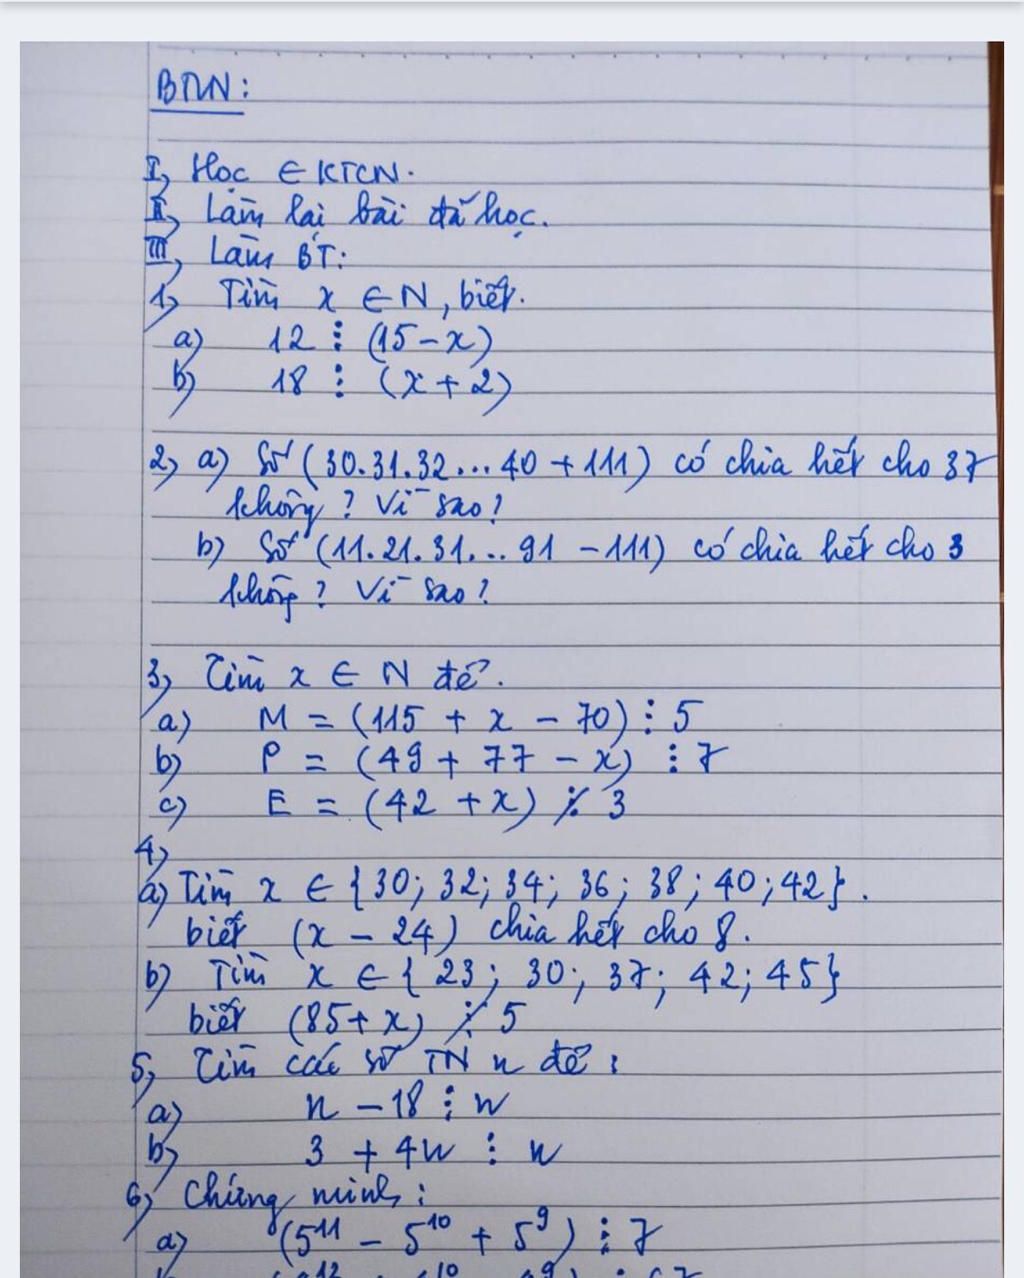 BTVN:
I, Học ∈ KTCN.
II, Làm lại bài đã học.
III, Làm BT:
1, Tìm x ∈ N, biết.
a) 12 ⋮ (15 - x)
b) 18 ⋮ (x + 2)
2, a) Số (30.31.32...40 + 111) có chia hết cho 37
không? Vì sao?
b) Số (11.21.31...91 - 111) có chia hết cho 3
không? Vì sao?
3, Tìm x ∈ N để.
a) M = (115 + x - 70) ⋮ 5
b) P = (49 + 77 - x) ⋮ 7
c) E = (42 + x) ⋮̸ 3
4,
a) Tìm x ∈ {30; 32; 34; 36; 38; 40; 42}.
biết (x - 24) chia hết cho 8.
b) Tìm x ∈ {23; 30; 37; 42; 45}
biết (85 + x) ⋮̸ 5
5, Tìm các số TN n để:
a) n - 18 ⋮ n
b) 3 + 4n ⋮ n
6, Chứng minh:
a) (5¹¹ - 5¹⁰ + 5⁹) ⋮ 7